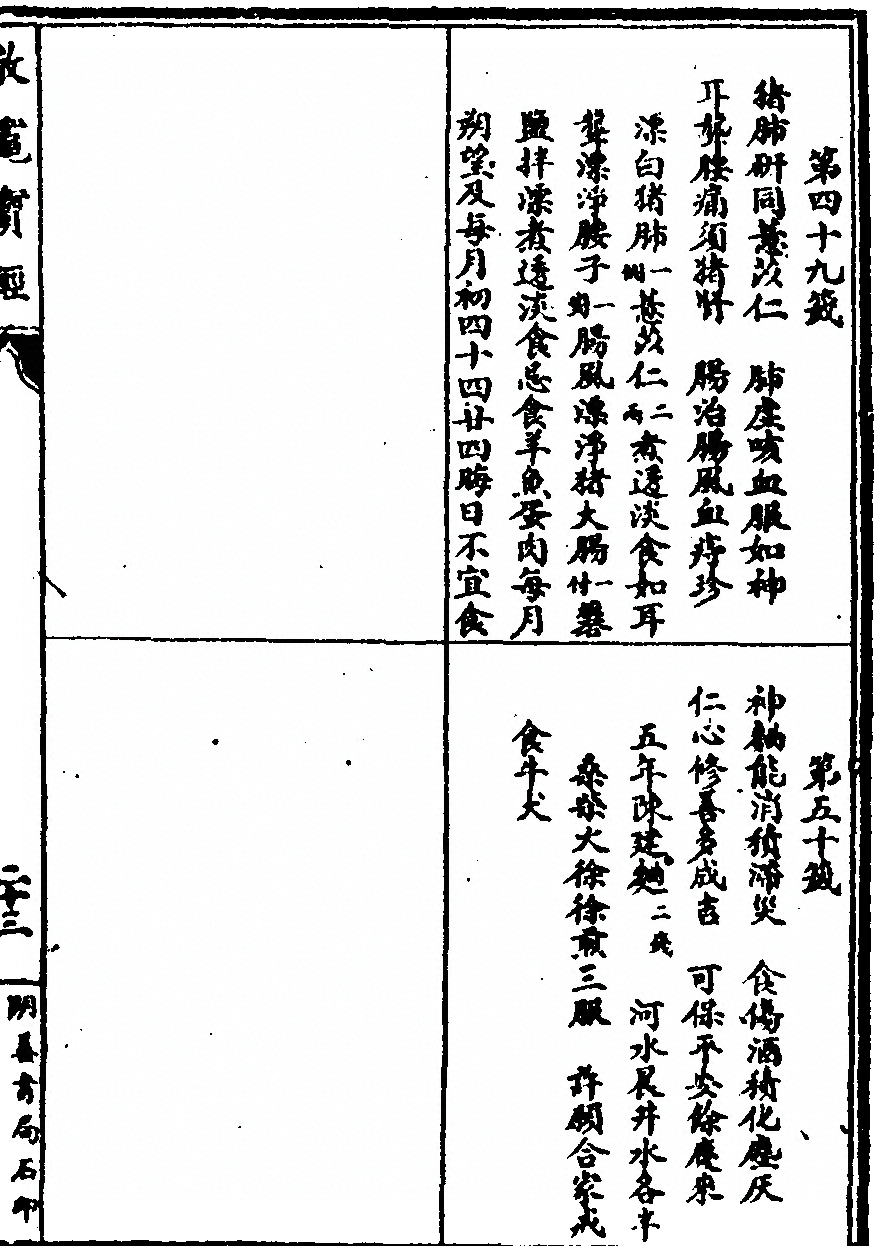 第四十九籤
猪肺研同薏苡仁　肺虛咳血服如神
耳聾腰痛須猪腎　腸治腸風血痔珍
漂白猪肺一個薏苡仁二兩煮透淡食如耳
聾漂淨腰子一對腸風漂淨猪大腸一付器
鹽拌漂煮透淡食忌食羊魚蛋肉每月
朔望及每月初四十四廿四晦日不宜食
第五十籤
神麯能消積滯災　食傷酒積化塵灰
仁心修善多成吉　可保平安餘慶來
五年陳建麯二錢　河水晨井水各半
桑柴火徐徐煎三服　許願合家戒
食牛犬
敬竈寶經
二十三
明善書局石印